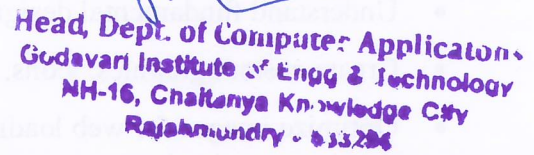 Head, Dept. of Computer Applications
Godavari Institute of Engg & Technology
NH-16, Chaitanya Knowledge City
Rajahmundry - 533296